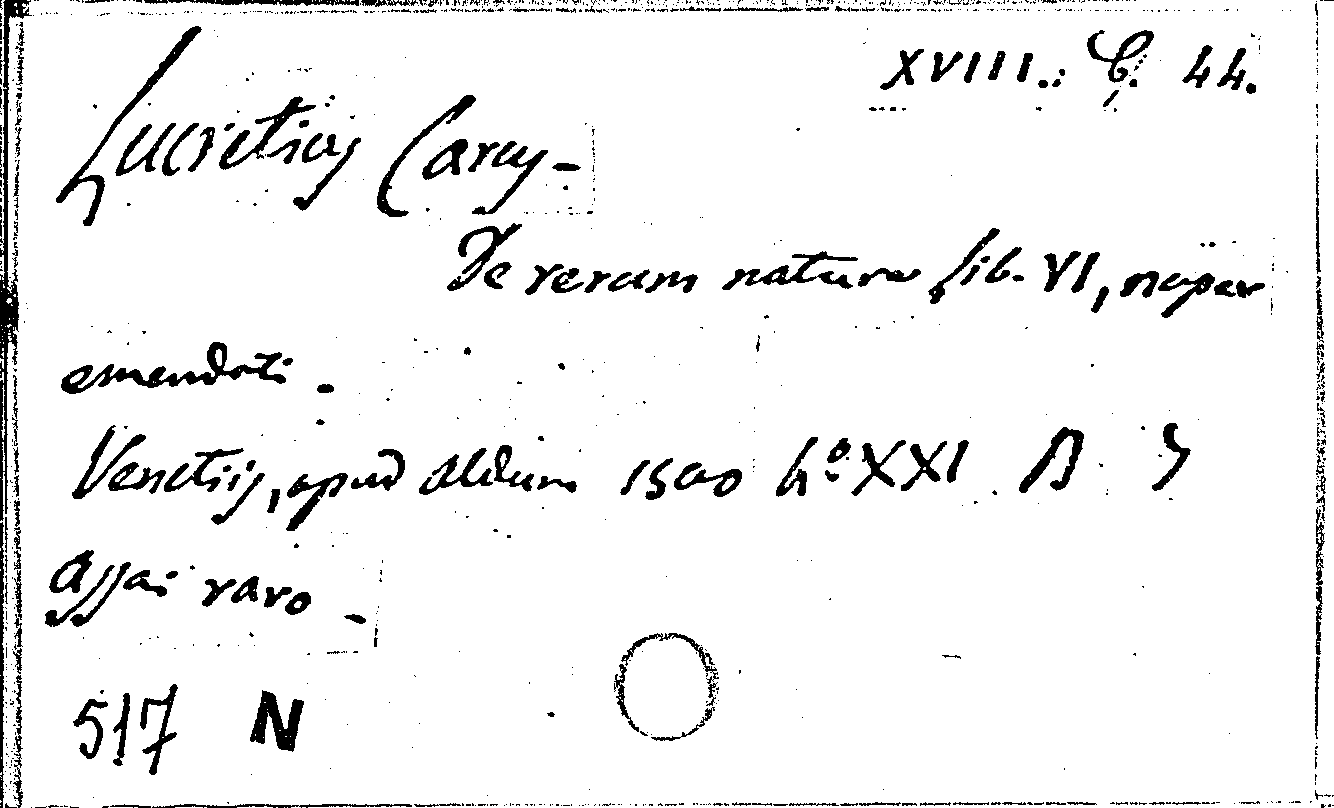 XVIII. C. 44.
Lucretius Carus -
De rerum natura Lib. VI, nuper
emendati -
Venetijs, apud Aldum 1500 4.º XXI B
assai raro -
517 N